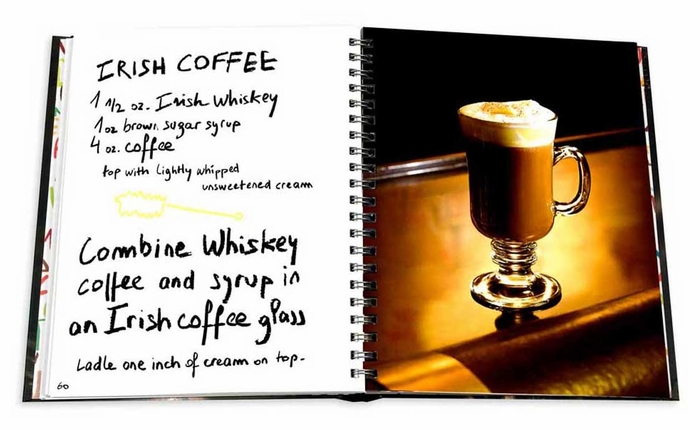 IRISH COFFEE
1 1/2 oz. Irish Whiskey
1oz brown sugar syrup
4 oz. coffee
top with lightly whipped
unsweetened cream
Combine Whiskey
coffee and syrup in
an Irish coffee glass
Ladle one inch of cream on top-
60